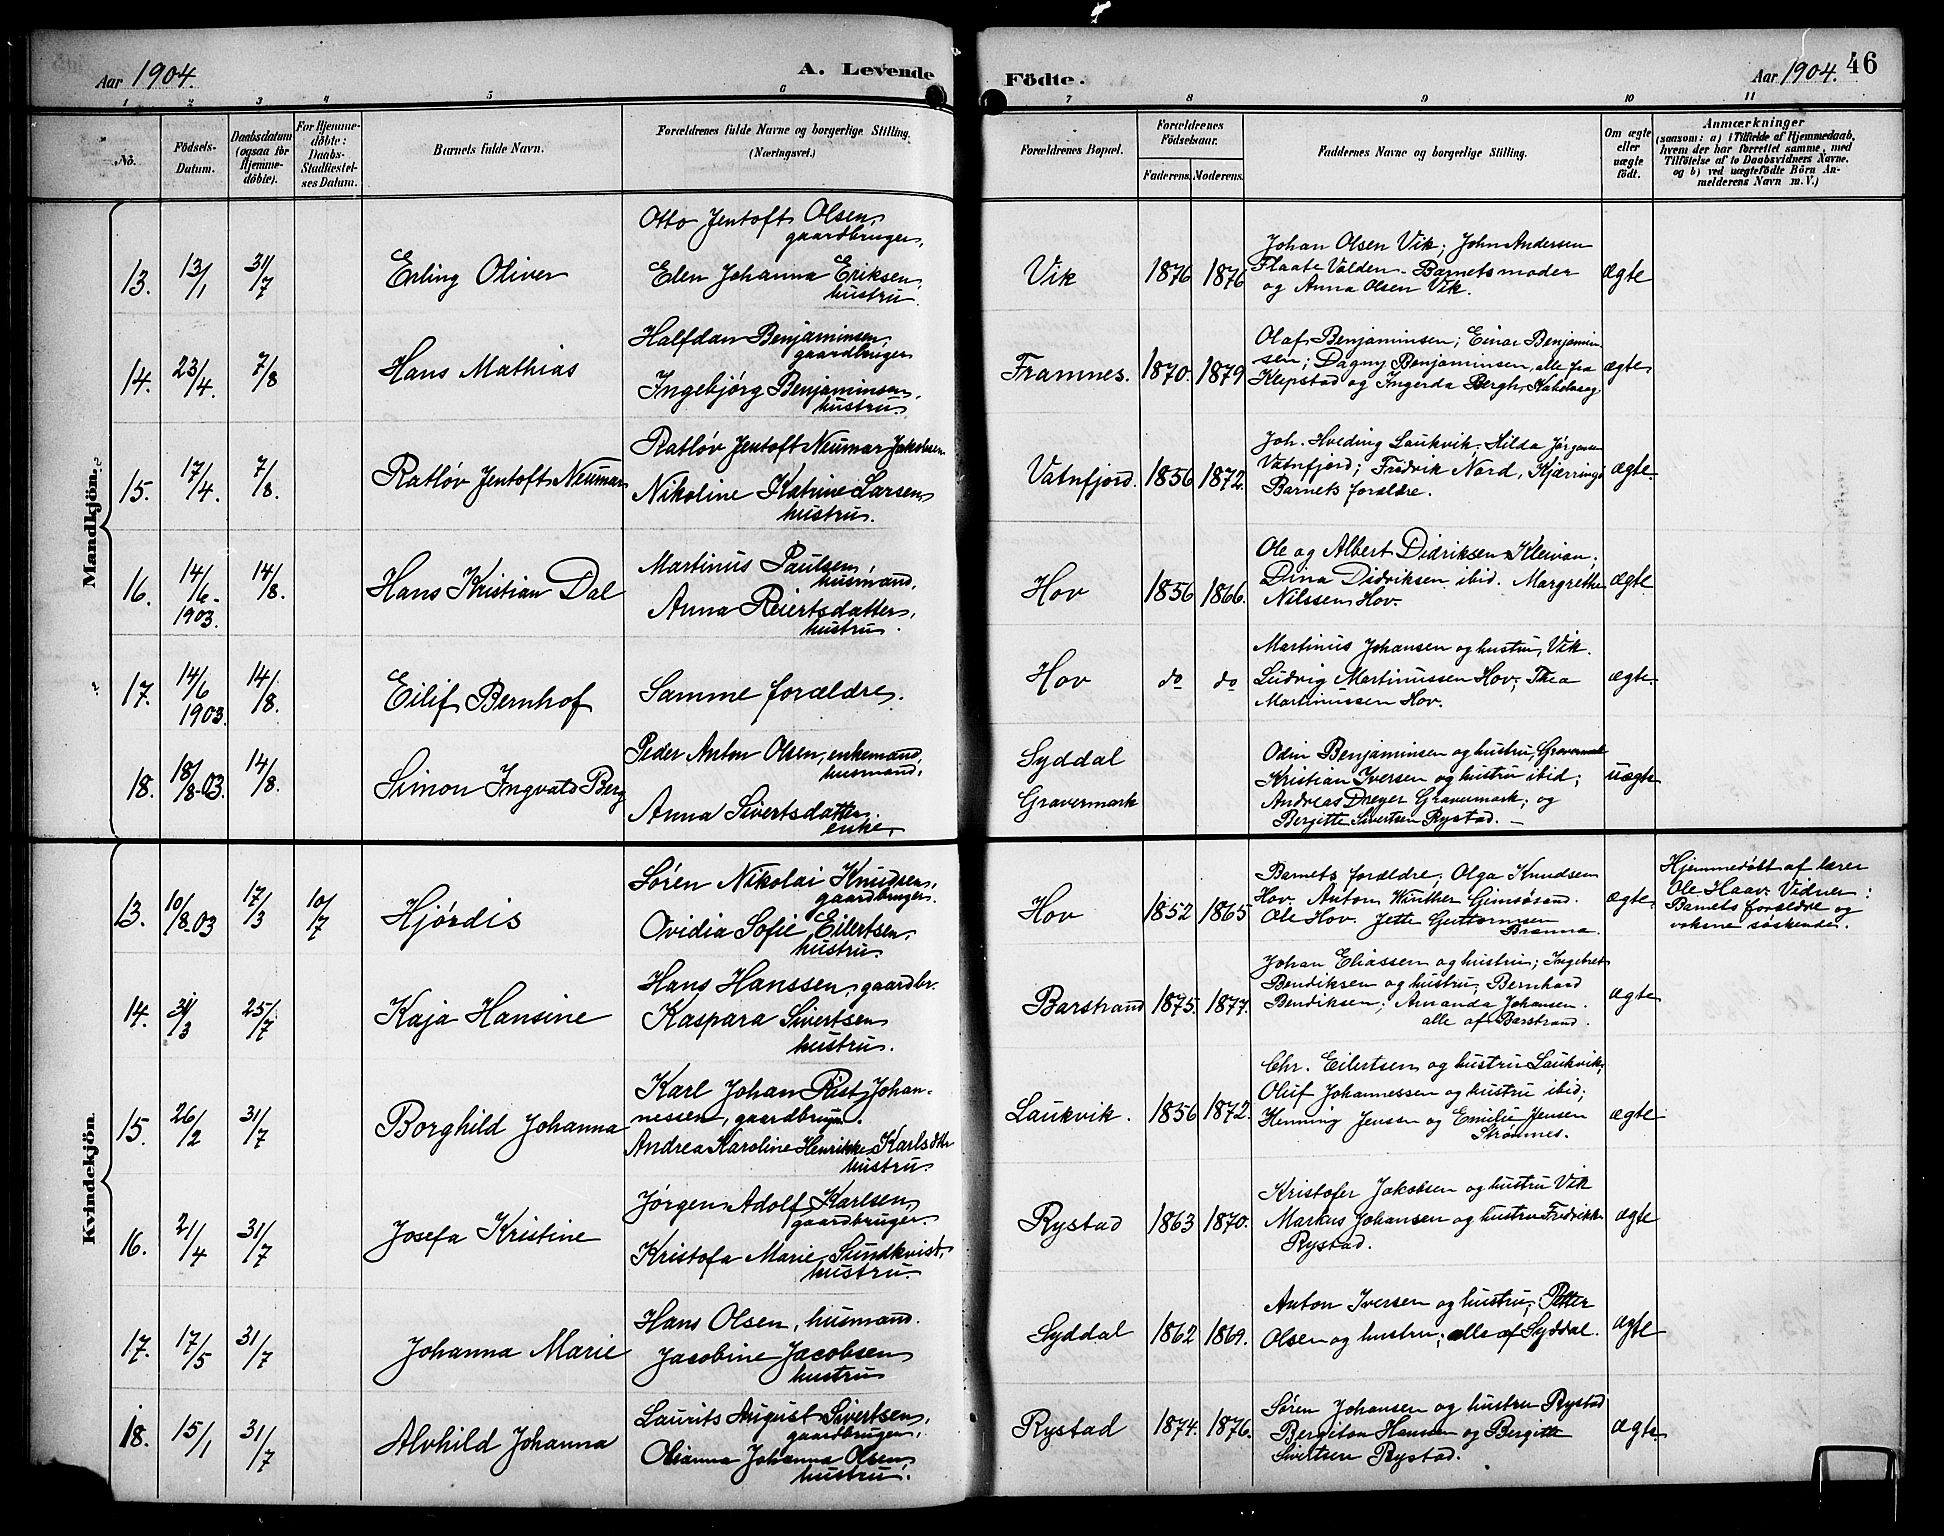 Aar 1904.
A. Levende
Födte.
Aar 1904. 46
1 2 3 4 5 6 7 8 9 10 11
No.
Födsels-
Datum.
Daabsdatum
(ogsaa for
Hjemme-
döbte).
For Hjemme-
döbte:
Daabs-
Stadfæstel-
ses Datum.
Barnets fulde Navn.
Forældrenes fulde Navne og borgerlige Stilling.
(Næringsvei.)
Forældrenes Bopæl.
Forældrenes
Födselsaar.
Faderens. Moderens.
Faddernes Navne og borgerlige Stilling.
Om ægte
eller
uægte
födt.
Anmærkninger
(saasom: a) i Tilfælde af Hjemmedaab,
hvem der har forrettet samme, med
Tilföielse af to Daabsvidners Navne.
og b) ved uægtefödte Börn An-
melderens Navn m. V.)
Mandkjön.
13. 13/1 31/7 Erling Oliver
Otto Jentoft Olsen,
gaardbruger,
Elen Johanna Eriksen,
hustru.
Vik 1876 1876
Johan Olsen Vik; John Andersen
Flaate Valden. Barnets moder
og Anna Olsen Vik.
ægte
14. 23/4. 7/8 Hans Mathias
Halfdan Benjaminsen,
gaardbruger
Ingebjørg Benjaminsen,
hustru.
Framnes. 1870. 1879
Olaf Benjaminsen; Einar Benjamin-
sen; Dagny Benjaminsen, alle fra
Klepstad og Ingerda Bergh,
ægte
15. 17/4. 7/8. Ratløv Jentoft Neuman
Ratløv Jentoft Neumar Jakobsen
Nikoline Katrine Larsen,
hustru.
Vatnfjord. 1856 1872.
Joh. Hveding Laukvik; Hilda Jørgensen
Vatnfjord; Fredrik Nord, Kjærringø
Barnets forældre.
ægte
16. 14/6- 1903. 14/8. Hans Kristian Dal
Martinus Paulsen,
husmand,
Anna Reiertsdatter,
hustru.
Hov 1856 1866.
Ole og Albert Didriksen Kleivan;
Dina Didriksen ibid. Margrethe
Nilssen Hov.
ægte
17. 14/6 1903. 14/8. Eilif Bernhof
Samme forældre.
Hov do do
Martinus Johansen og hustru, Vik.
Ludvig Martinussen Hov; Thea
Martinussen Hov.
ægte.
18. 18/8-03. 14/8. Simon Ingvald Berg
Peder Anton Olsen, enkemand,
husmand,
Anna Sivertsdatter
enke,
Syddal
Gravermark
Odin Benjaminsen og hustru, Gravermark
Kristian Iversen og hustru ibid;
Andreas Dreyer Gravermark; og
Bergitte Sivertsen Rystad. —
uægte
Kvindekjön.
13. 10/8.03 17/3 10/7 Hjørdis
Søren Nikolai Knudsen,
gaardbruger.
Ovidia Sofie Eilertsen,
hustru.
Hov 1852 1865
Barnets forældre; Olga Knudsen
Hov. Anton Winther Gimsøsand.
Ole Hov. Jette Guttormsen
Brenna.
ægte.
Hjemmedøbt af lærer
Ole Haav. Vidner:
Barnets forældre og
voksne søskende.
14. 31/3 25/7 Kaja Hansine
Hans Hanssen, gaardbr.
Kaspara Sivertsen
hustru.
Barstrand 1875. 1877.
Johan Eliassen og hustru; Ingebret
Bendiksen og hustru, Bernhard
Bendiksen; Amanda Johansen.
alle af Barstrand.
ægte
15. 26/2 31/7 Borghild Johanna
Karl Johan Rist Johan-
nessen, gaardbruger.
Andrea Karoline Henrikke Karlsdtr
hustru.
Laukvik. 1856 1872.
Chr. Eilertsen og hustru Laukvik;
Oluf Johannessen og hustru ibid;
Henning Jensen og Emilie Jensen
Strømnes.
ægte
16. 21/4 31/7 Josefa Kristine
Jørgen Adolf Karlsen,
gaardbruger.
Kristofa Marie Sundkvist,
hustru.
Rystad 1863 1870.
Kristofer Jakobsen og hustru Vik
Markus Johansen og hustru Fredrikke
Rystad.
ægte
17. 17/5 31/7 Johanna Marie
Hans Olsen, husmand.
Jacobine Jacobsen
hustru
Syddal 1862 1869.
Anton Iversen og hustru; Petter
Olsen og hustru; alle af Syddal.
ægte
18. 15/1 31/7 Alvhild Johanna
Laurits August Sivertsen,
gaardbruger,
Olianna Johanna Olsen
hustru.
Rystad 1874. 1876.
Søren Johansen og hustru Rystad
Bergiton Hansen og Bergitte
Sivertsen Rystad.
ægte.